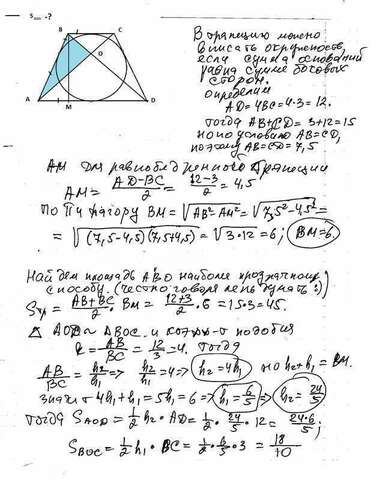 S -?
B
C
O
A
M
D
В трапецию можно
вписать окружность,
если сумма оснований
равна сумме боковых
сторон.
определим
AD=4BC=4·3=12.
тогда AB+CD=3+12=15
но по условию AB=CD,
поэтому AB=CD=7,5
AM для равнобедренного трапеции
AM = AD-BC/2 = 12-3/2 = 4,5
По Пифагору BM = √AB²-AM² = √7,5²-4,5² =
= √(7,5-4,5)(7,5+4,5) = √3·12 = 6; BM=6.
Найдем площадь ABO наиболее
способу. (честно говоря лень думать :)
Sтр = AB+BC/2 · BM = 12+3/2 · 6 = 15·3 = 45.
△ AOD ∼ △BOC и подобия
k = AB/BC = 12/3 = 4. тогда
AB/BC = h₂/h₁ => h₂/h₁ = 4 => h₂=4h₁ но h₂+h₁ = BM.
значит 4h₁+h₁ = 5h₁ = 6 => h₁=6/5 => h₂=24/5
тогда SAOD = 1/2 h₂·AD = 1/2 · 24/5 · 12 = 24·6/5;
SBOC = 1/2 h₁·BC = 1/2 · 6/5 · 3 = 18/10